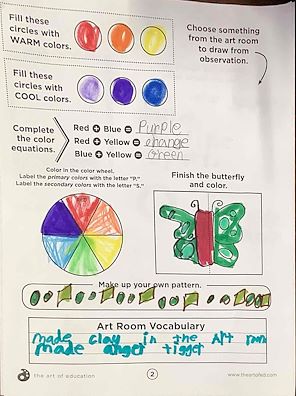 Fill these
circles with
WARM colors.
Choose something
from the art room
to draw from
observation.
Fill these
circles with
COOL colors.
Complete
the color
equations.
Red + Blue = Purple
Red + Yellow = orange
Blue + Yellow = Green
Color in the color wheel.
Label the primary colors with the letter "P."
Label the secondary colors with the letter "S."
Finish the butterfly
and color.
Make up your own pattern.
Art Room Vocabulary
made clay in the Art
made
the art of education
2
www.theartofed.com